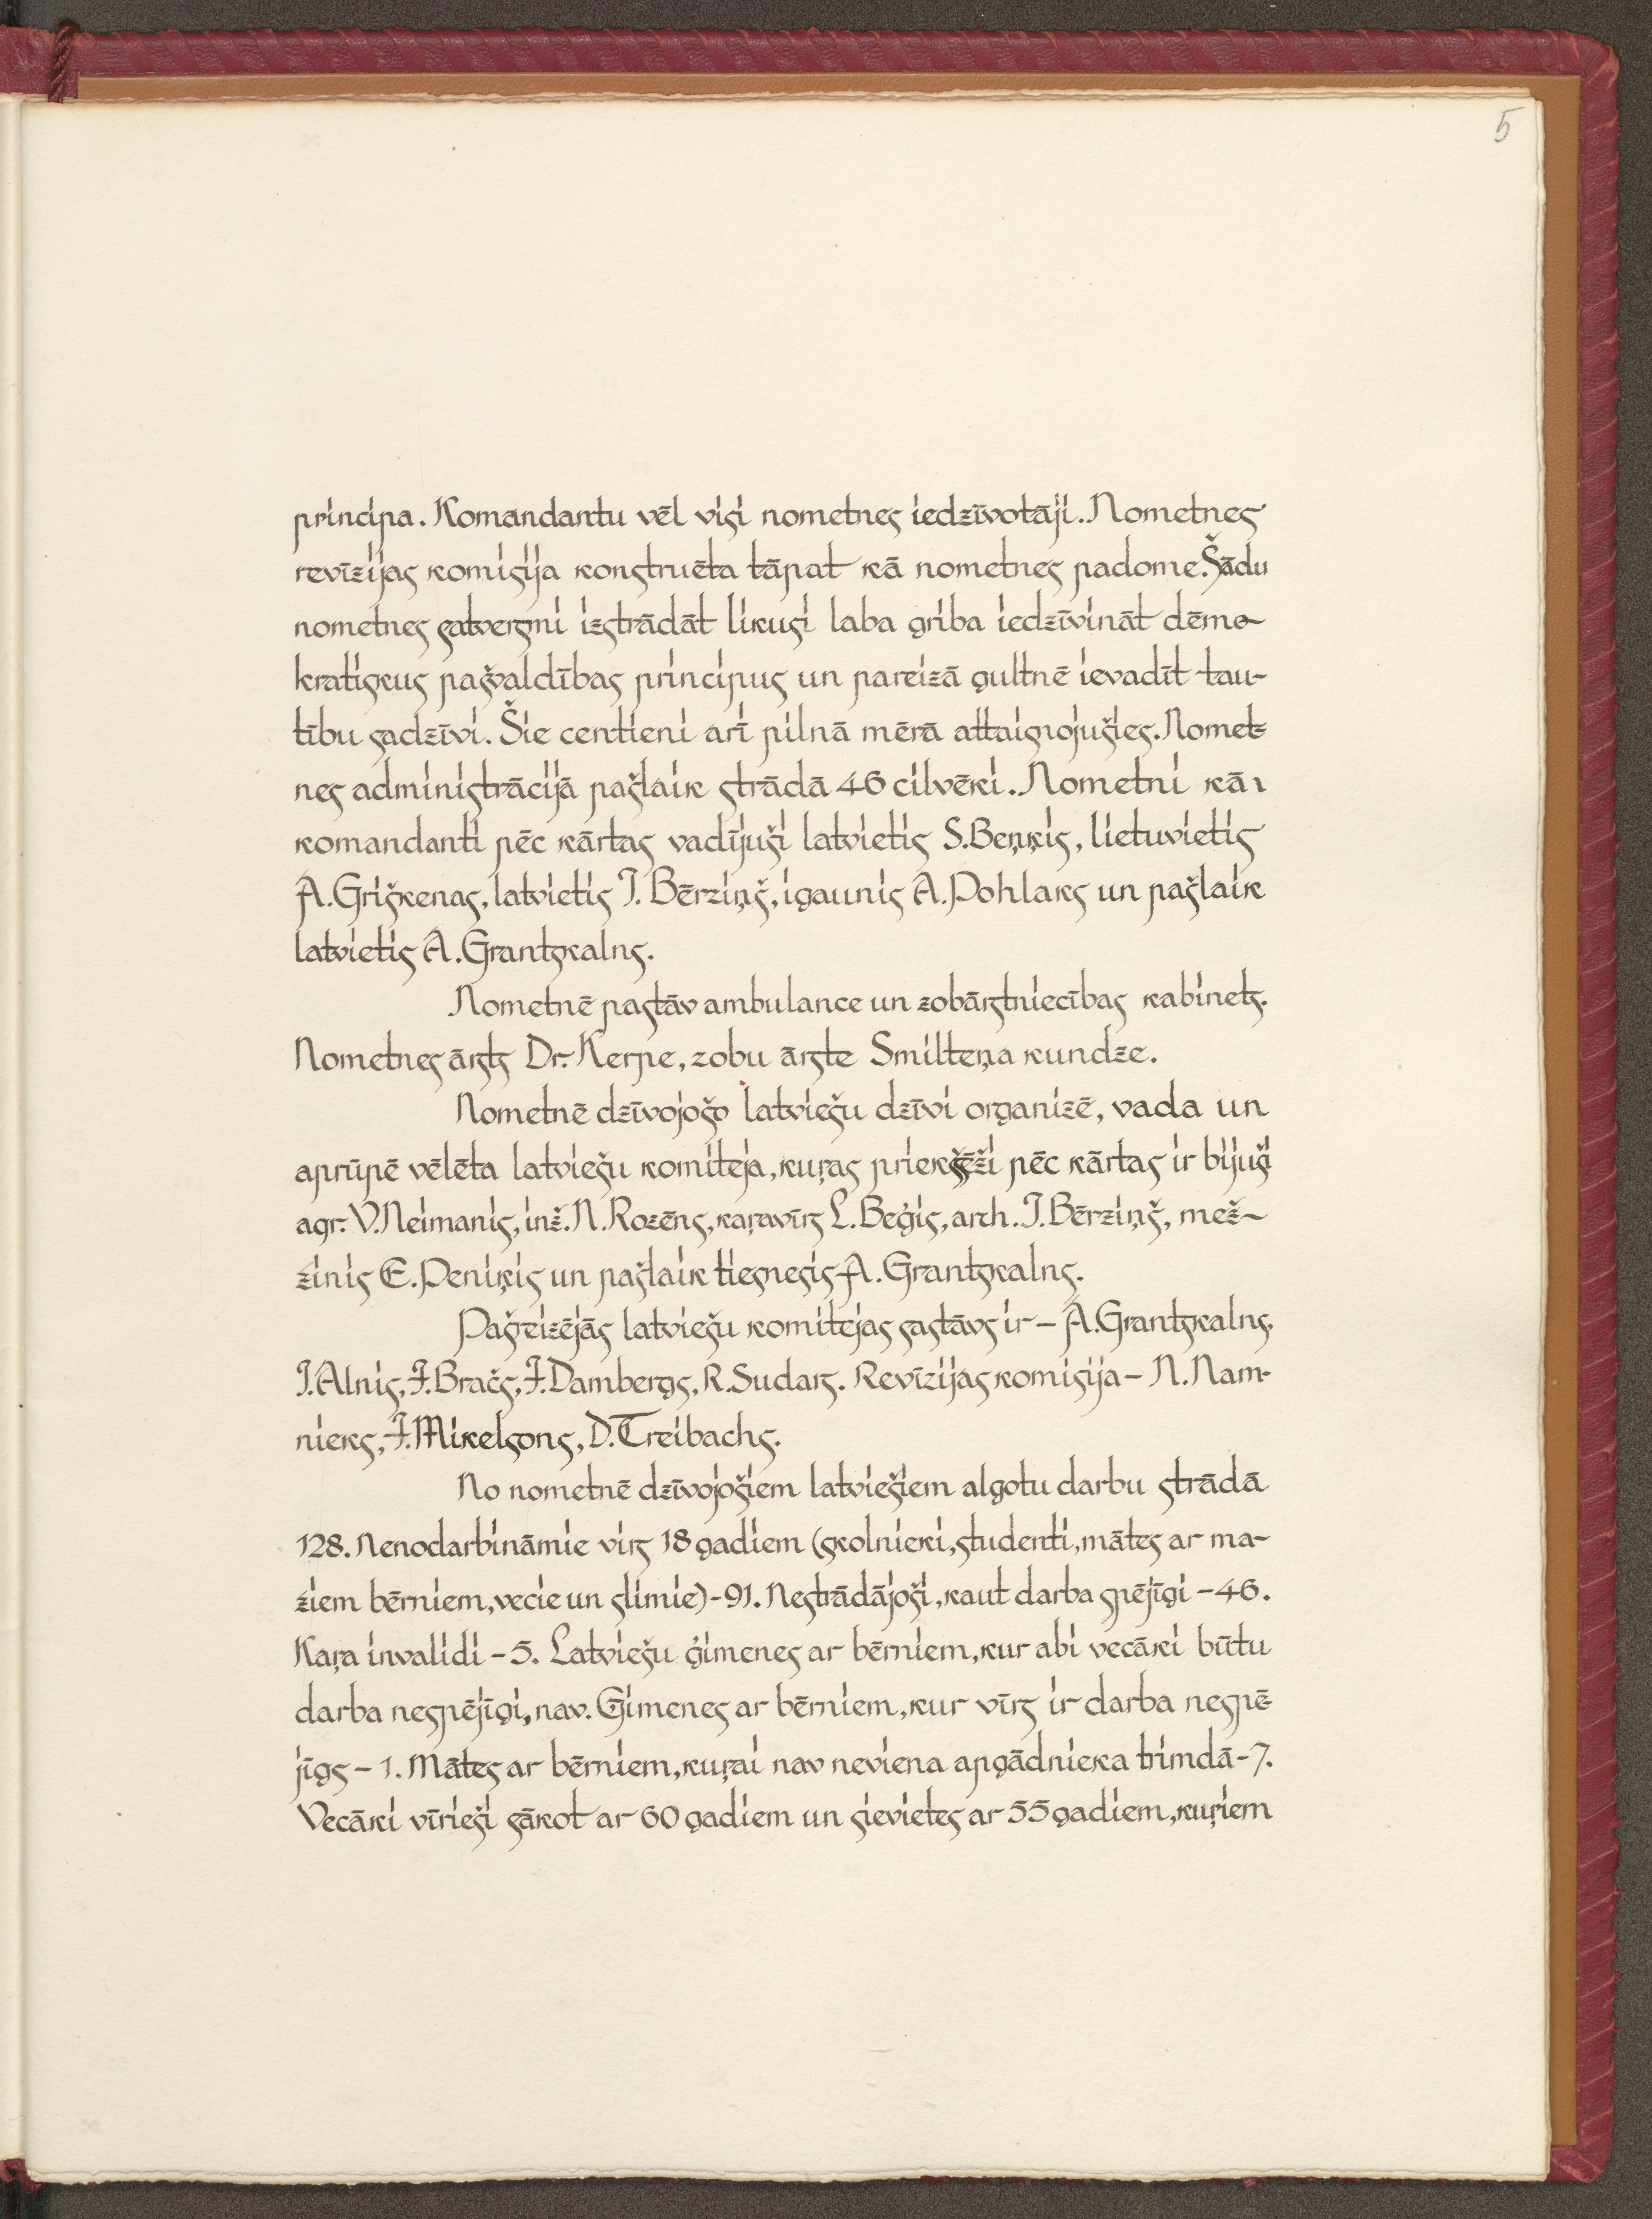 5
principa. Komandantu vēl visi nometnes iedzīvotāji. Nometnes
revīzijas komisija konstruēta tāpat kā nometnes padome. Šādu
nometnes satversmi izstrādāt likusi laba griba iedzīvināt dēmo-
kratiskus pašvaldības principus un pareizā gultnē ievadīt tau-
tību sadzīvi. Šie centieni arī pilnā mērā attaisnojušies. Nomet-
nes administrācijā pašlaik strādā 46 cilvēki. Nometni kā
komandanti pēc kārtas vadījuši latvietis S. Beņķis, lietuvietis
A. Griškenas, latvietis J. Bērziņš, igaunis A. Pohlaks un pašlaik
latvietis A. Grantskalns.
Nometnē pastāv ambulance un zobārstniecības kabinets.
Nometnes ārsts Dr. Kerpe, zobu ārste Smilteņa kundze.
Nometnē dzīvojošo latviešu dzīvi organizē, vada un
aprūpē vēlēta latviešu komiteja, kuŗas priekšsēži pēc kārtas ir bijuši
agr. V. Neimanis, inž. N. Rozēns, kaŗavīrs L. Beģis, arch. J. Bērziņš, mež-
zinis E. Peniķis un pašlaik tiesnesis A. Grantskalns.
Pašreizējās latviešu komitejas sastāvs ir – A. Grantskalns,
J. Alnis, J. Bračs, J. Dambergs, R. Sudars. Revīzijas komisija – N. Nam-
nieks, J. Mikelsons, D. Treibachs.
No nometnē dzīvojošiem latviešiem algotu darbu strādā
128. Nenodarbināmie virs 18 gadiem (skolnieki, studenti, mātes ar ma-
ziem bērniem, vecie un slimie) - 91. Nestrādājoši, kaut darba spējīgi – 46.
Kaŗa invalidi – 5. Latviešu ģimenes ar bērniem, kur abi vecāki būtu
darba nespējīgi, nav. Ģimenes ar bērniem, kur vīrs ir darba nespē-
jīgs – 1. Mātes ar bērniem, kuŗai nav neviena apgādnieka trimdā - 7.
Vecāki vīrieši sākot ar 60 gadiem un sievietes ar 55 gadiem, kuŗiem